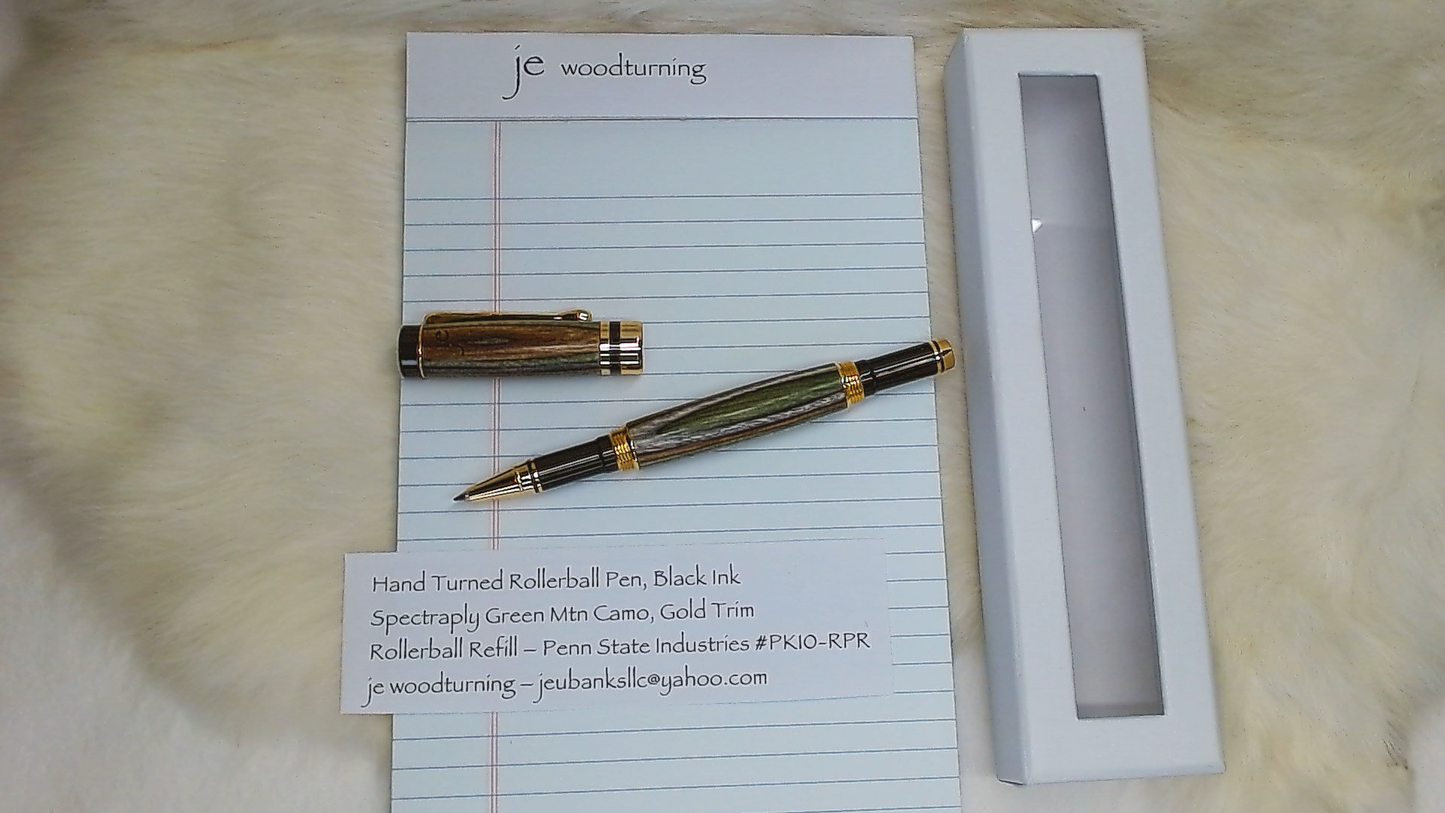 je woodturning
je
Hand Turned Rollerball Pen, Black Ink
Spectraply Green Mtn Camo, Gold Trim
Rollerball Refill – Penn State Industries #PK10-RPR
je woodturning – jeubanksllc@yahoo.com